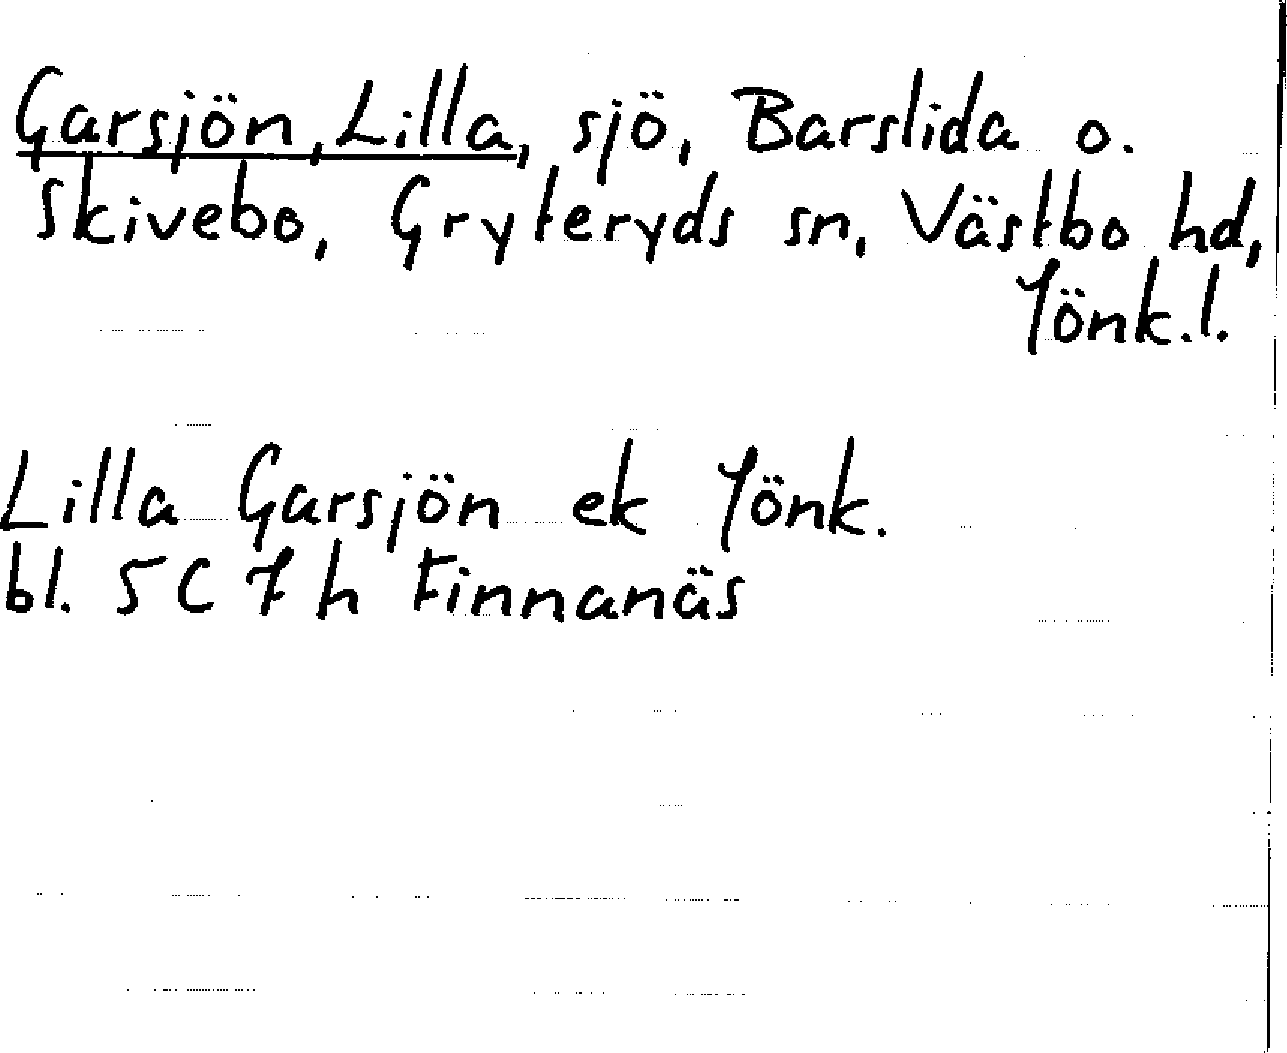 Garsjön, Lilla, sjö, Barslida o.
Skivebo, Gryteryds sn, Västbo hd,
Jönk.l.
Lilla Garsjön ek Jönk.
bl. 5C 7h Finnanäs